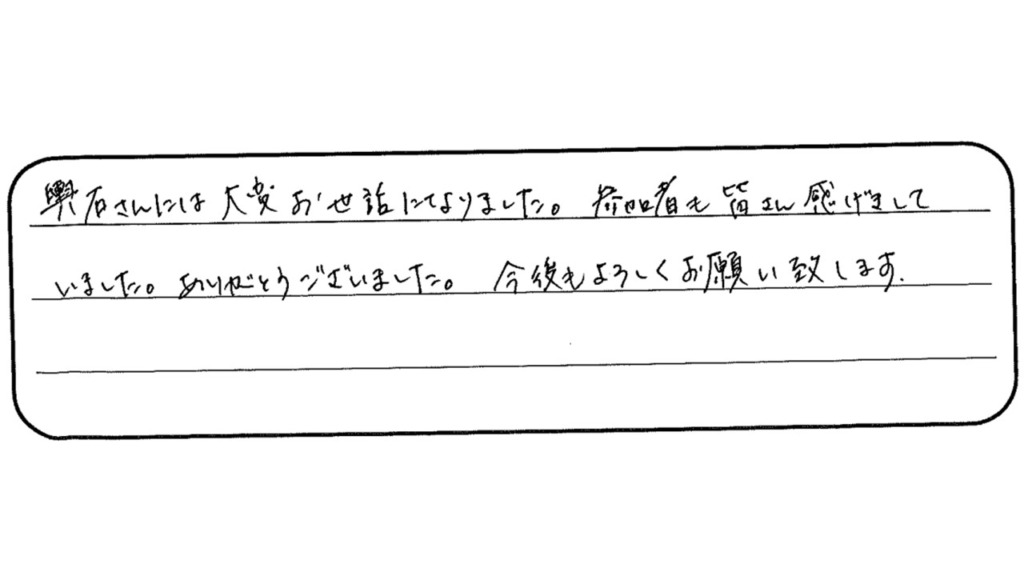 輿石さんには大変お世話になりました。参加者も皆さん感げきして
いました。ありがとうございました。今後もよろしくお願い致します.